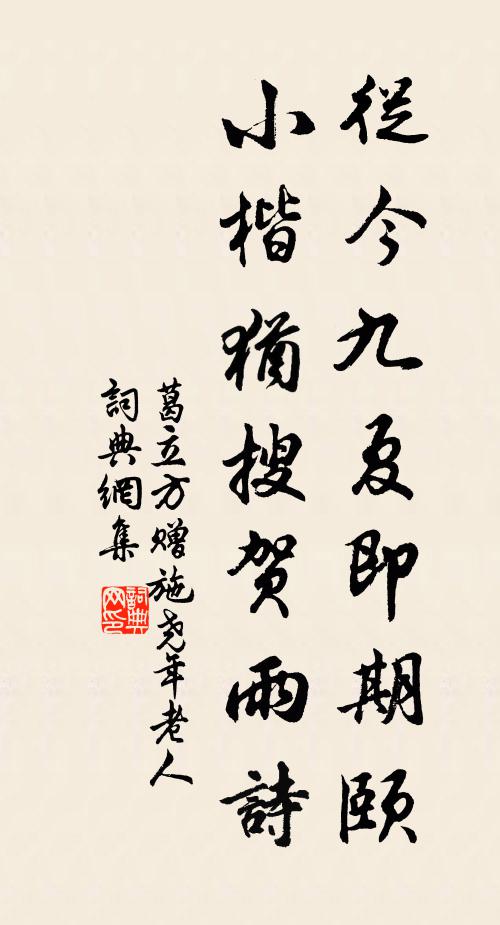 從今九夏即期頤
小楷猶搜贺雨詩
葛立方赠施尧年老人
詞典網集
詞典网印